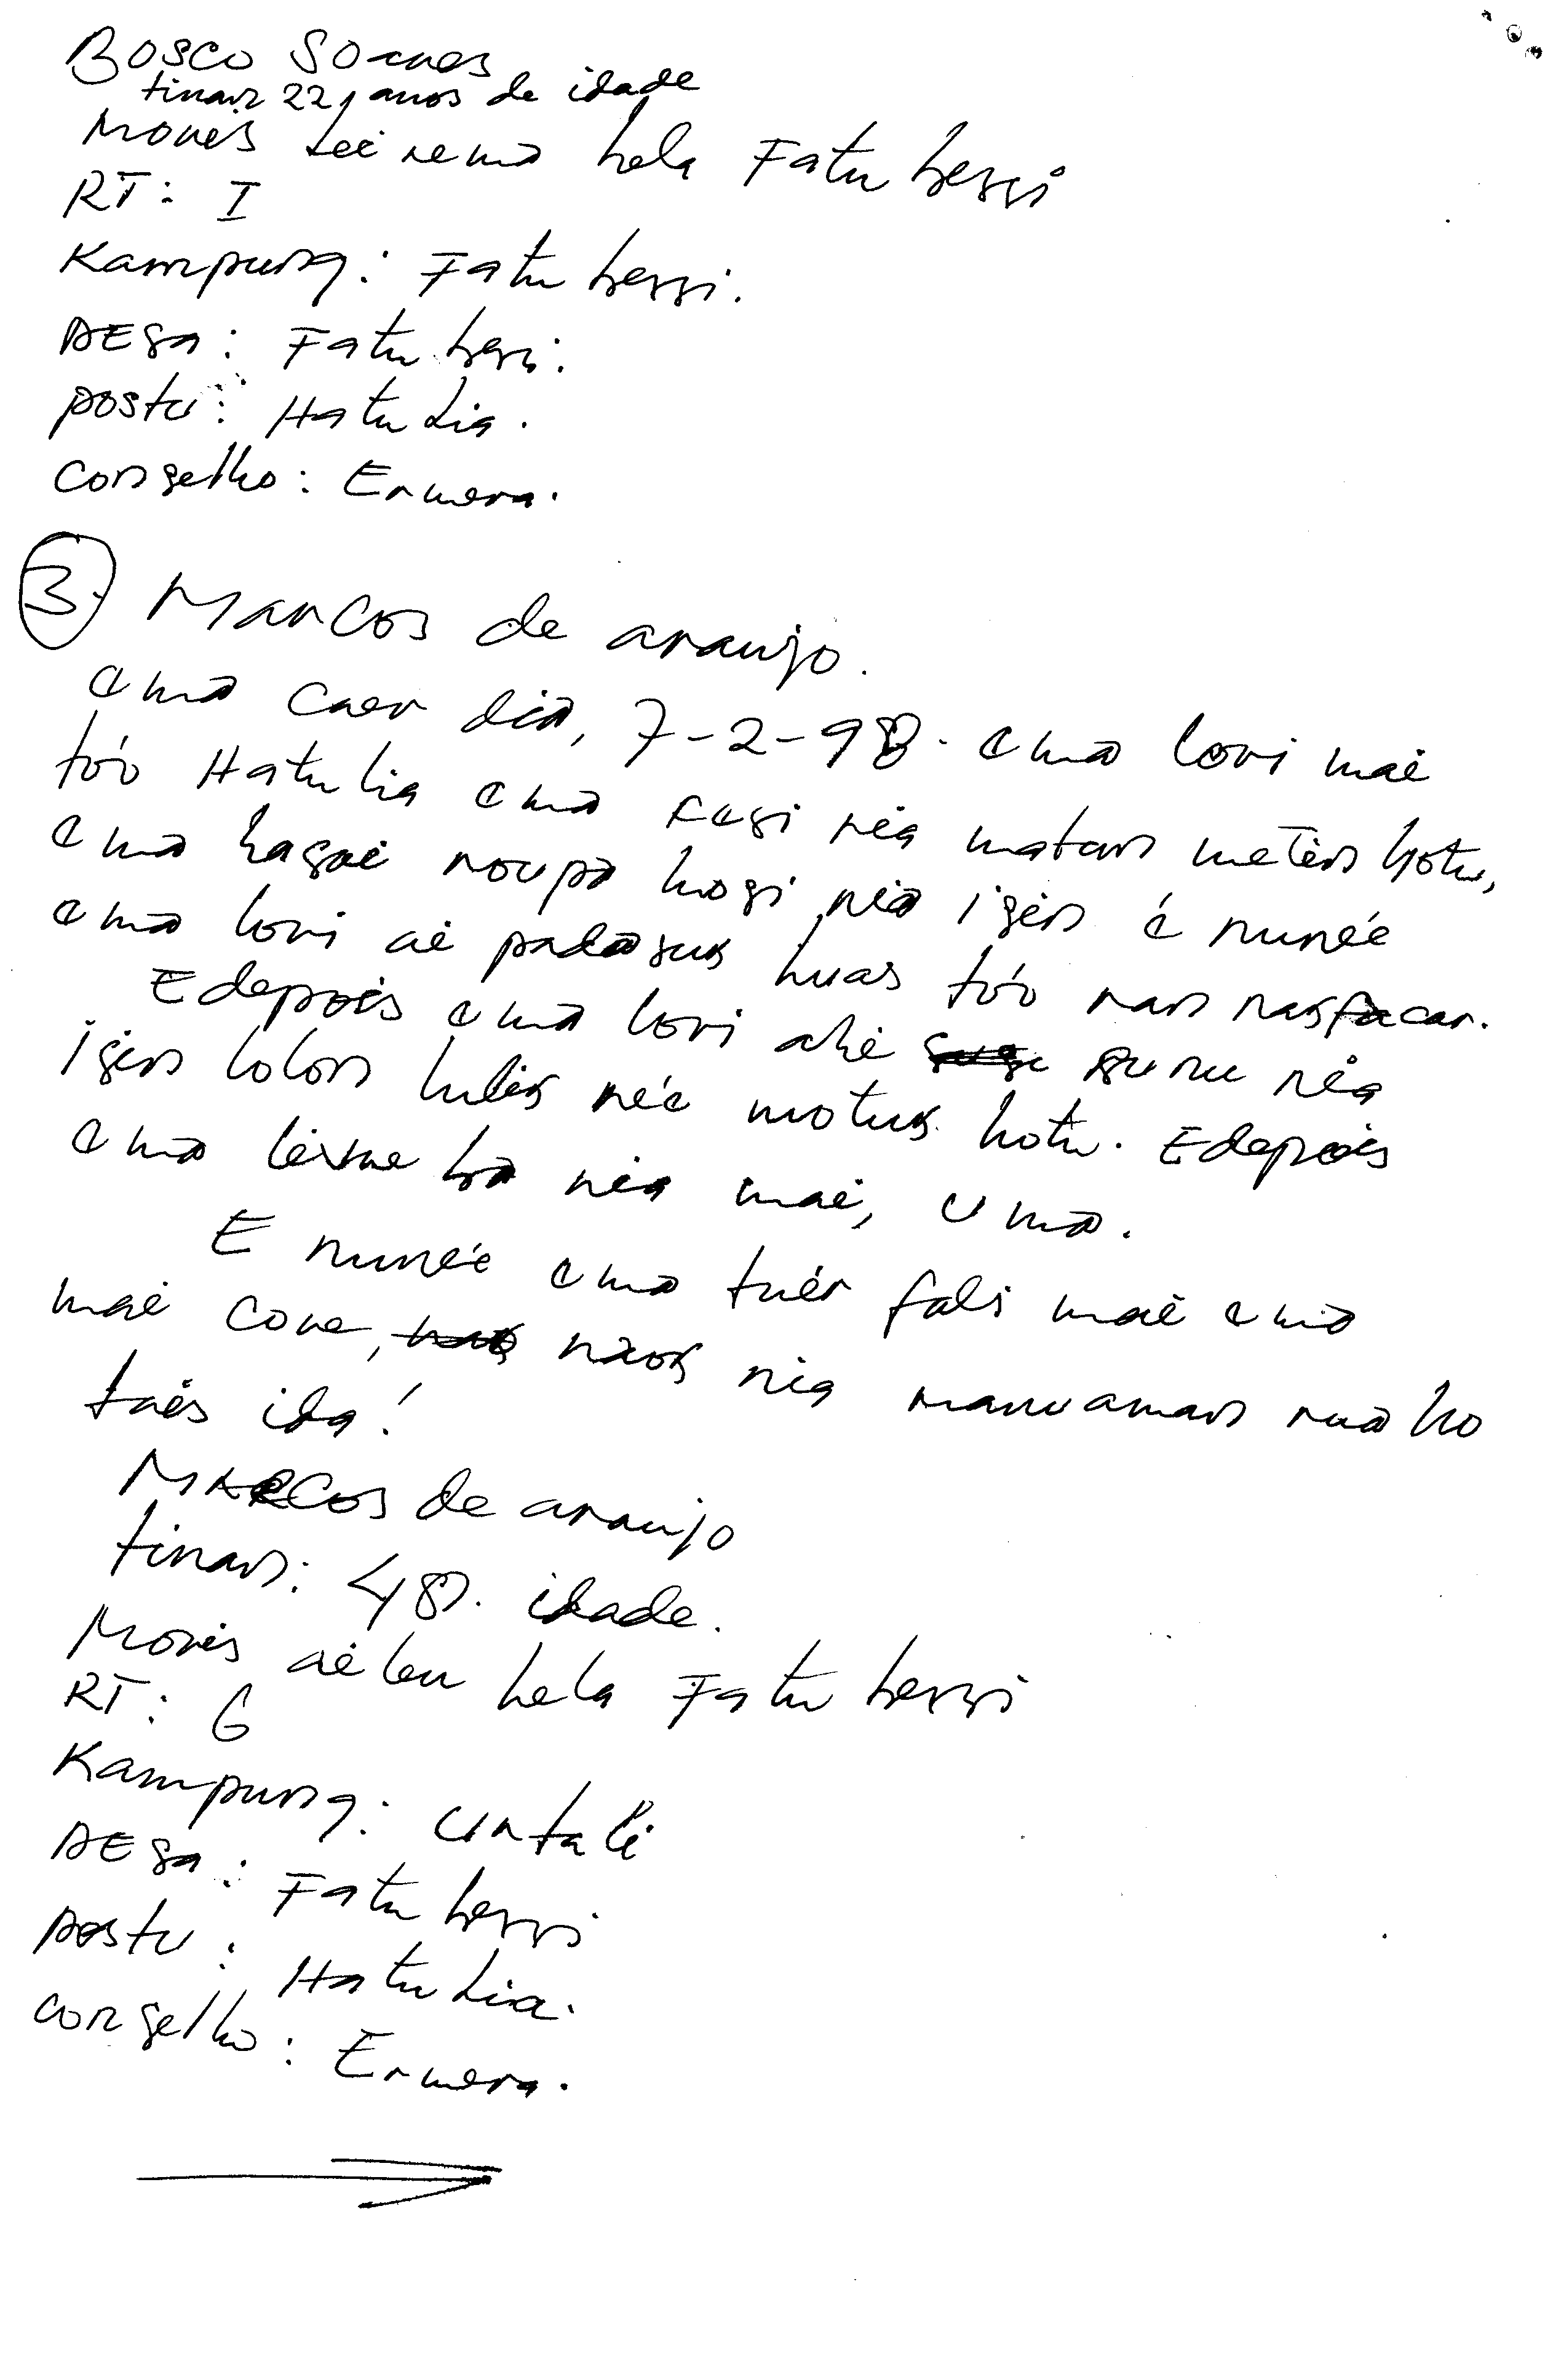 Bosco Soares
tinan 22, anos de idade
Moris Leirema hela Fatu bessi
RT: I
Kampung: Fatu bessi.
DEsa: Fatu besi.
postu: Hatu Lia.
conselho: Ermera.
3. Marcos de araujo.
ema caer dia, 7-2-98. ema lori mai
tó'o Hatu lia ema kesi nia matan metin hotu,
ema hasai roupa hosi nia isin é nuné'e
ema lori ai pada suk huas tó'o ran nakfacar.
E depois ema lori ahi sunu nia
isin lolon lulik né'e motuk hotu. E depois
ema nia mai, uma.
E nuné'e ema tuér fali mai ema
mai cone, naok nia manuaman rua ho
tais ida!
MARCos de araujo
tinan: 48. idade.
Moris aileu hela Fatu bessi
RT: 6
Kampung: urtali
DEsa: Fatu bessi
postu: Hatu Lia.
conselho: Ermera.